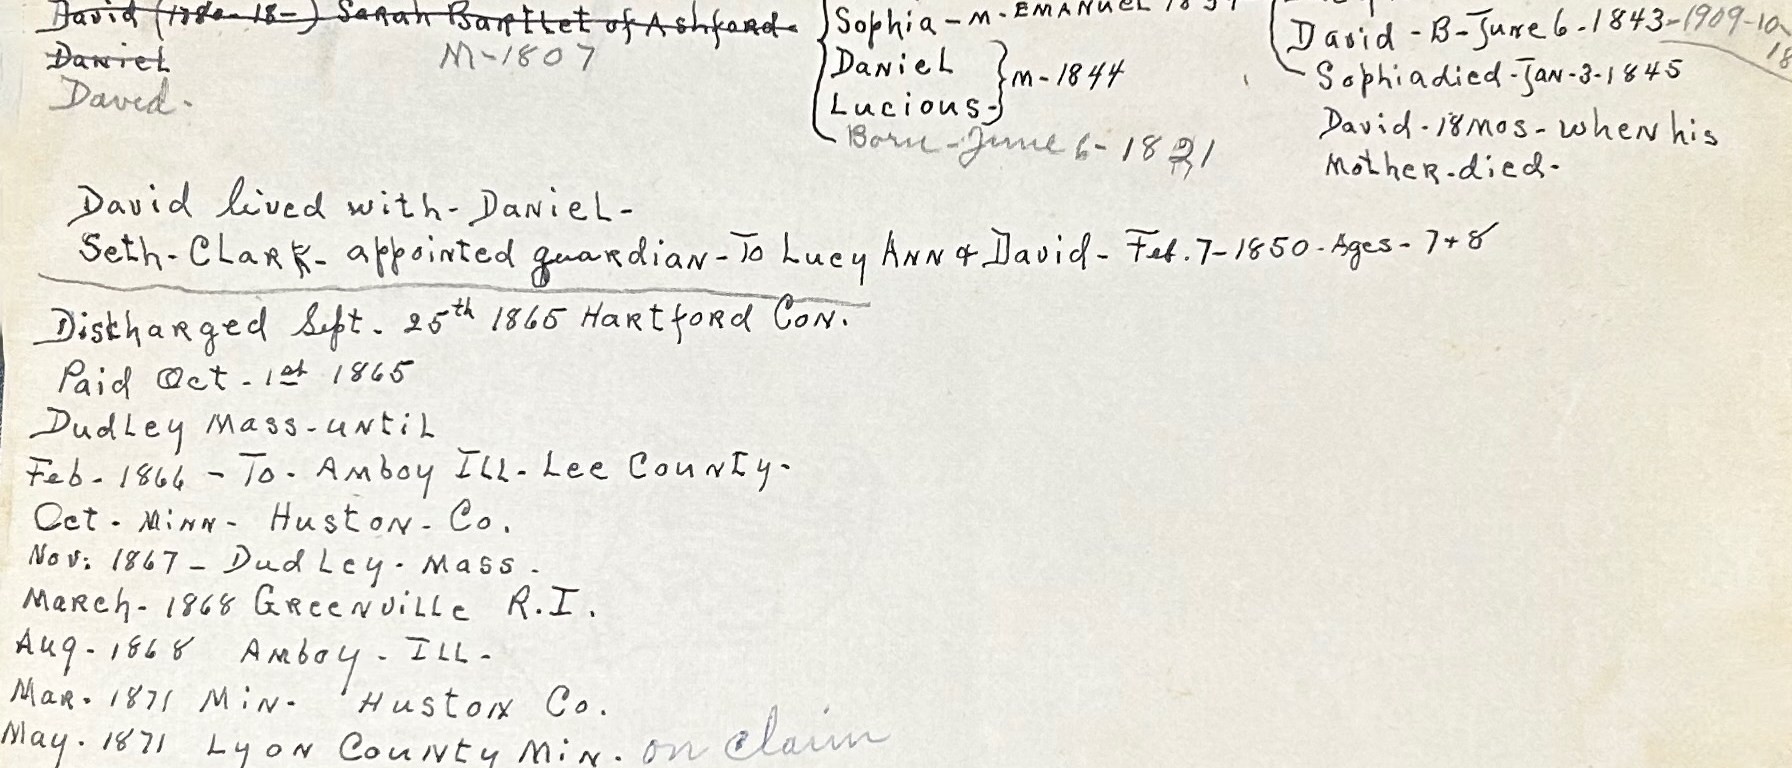 David (1780-18-) Sarah Bartlet of Ashford-
Daniel
M-1807
David-
Sophia - M- EMANUEL
Daniel
Lucious-
m-1844
Born-June 6-1821
David-B-June 6-1843-1909-10
18
Sophia died-Jan-3-1845
David-18mos-when his
Mother-died-
David lived with-Daniel-
Seth-Clark-appointed guardian-To Lucy Ann & David-Feb. 7-1850-Ages-7+8
Discharged Sept. 25th 1865 Hartford Con.
Paid Oct-1st 1865
Dudley Mass-until
Feb-1866-To-Amboy Ill-Lee County-
Oct-Minn-Huston-Co.
Nov: 1867-Dudley-Mass.
March-1868 Greenville R.I.
Aug-1868 Amboy-Ill-
Mar. 1871 Min- Huston Co.
May. 1871 Lyon County Min. on claim